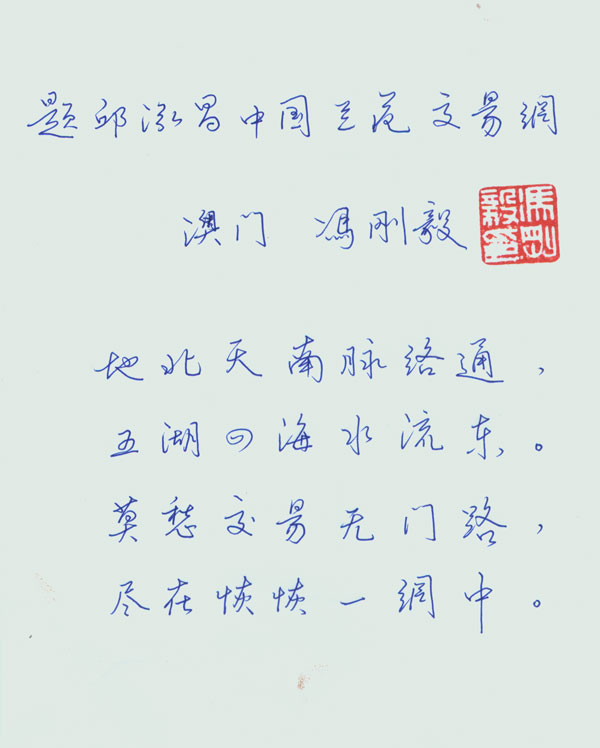 题邱泓昌中国兰花交易網
澳门 馮刚毅
馮刚毅
地北天南脉络通，
五湖四海水流东。
莫愁交易无门路，
尽在恢恢一網中。